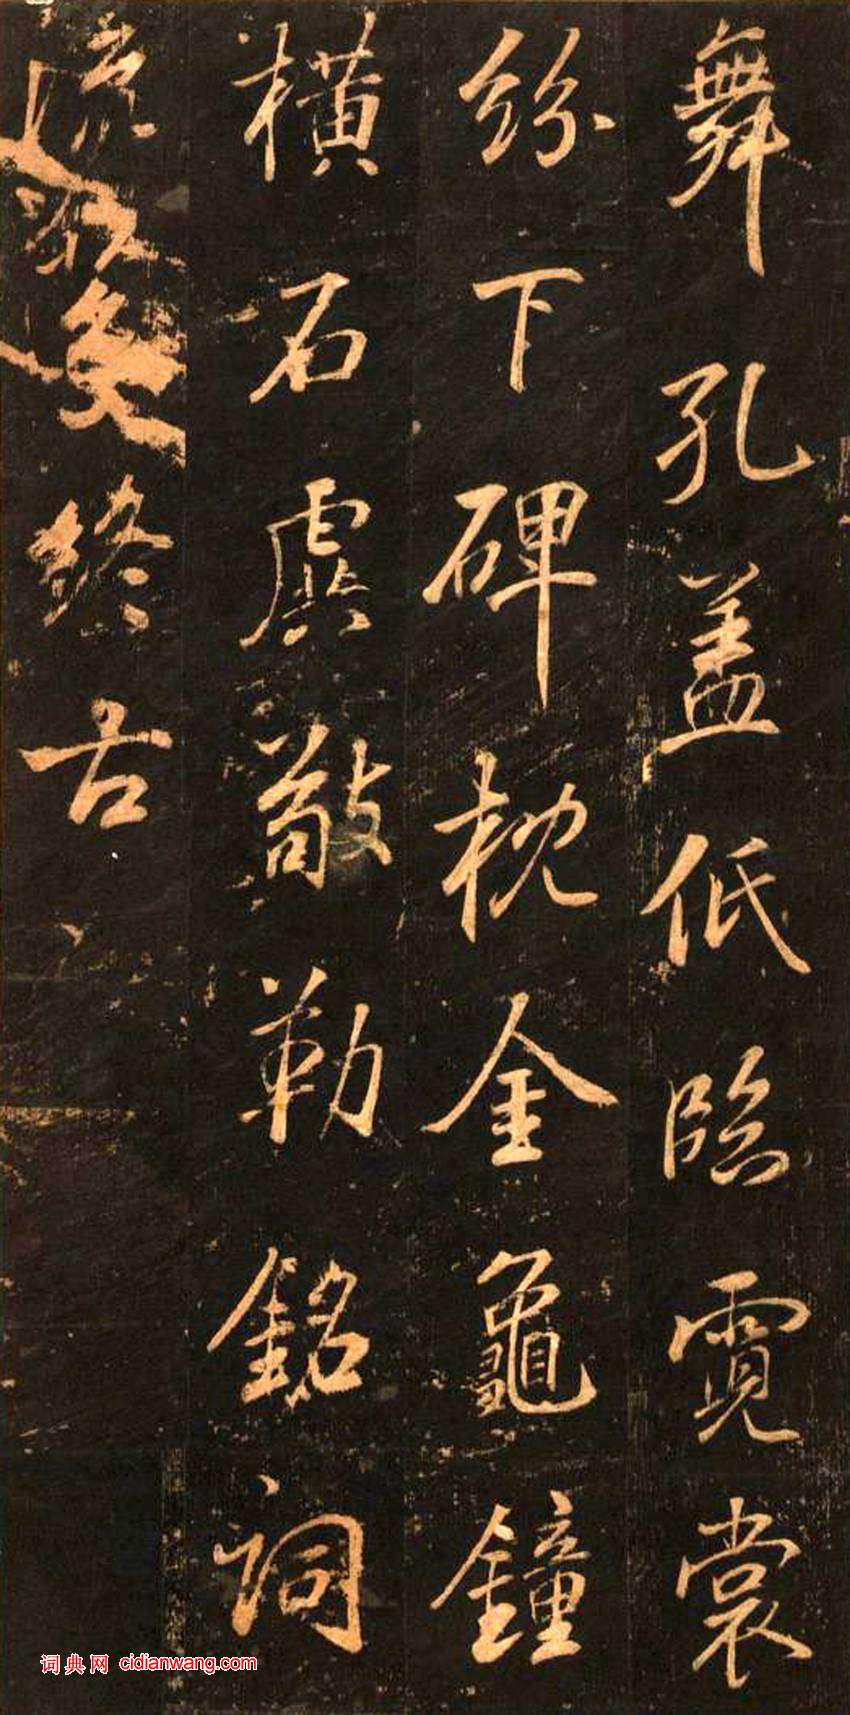 舞孔盖低臨霓裳
紛下碑枕金龜鐘
橫石虡敢勒銘詞
流終古
词典网 cidianwang.com